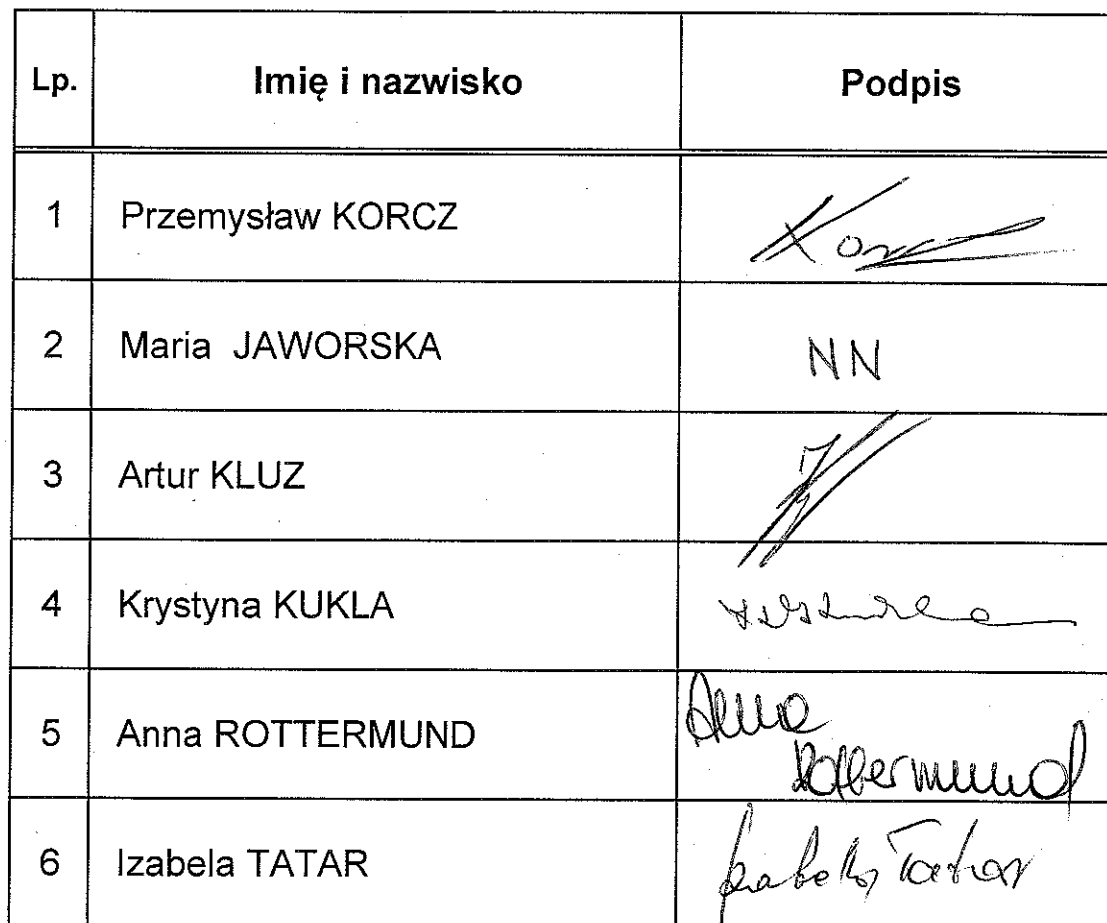 Lp. Imię i nazwisko Podpis
1 Przemysław KORCZ
2 Maria JAWORSKA NN
3 Artur KLUZ
4 Krystyna KUKLA
5 Anna ROTTERMUND Anna
Rottermund
6 Izabela TATAR Izabela Tatar